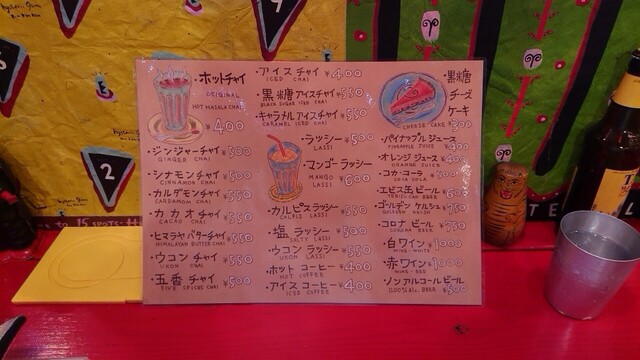 ・ホットチャイ
ORIGINAL
HOT MASALA CHAI
¥400
・ジンジャーチャイ ¥500
GINGER CHAI
・シナモンチャイ ¥500
CINNAMON CHAI
・カルダモンチャイ ¥550
CARDAMOM CHAI
・カカオチャイ ¥550
CACAO CHAI
・ヒマラヤバターチャイ ¥550
HIMALAYAN BUTTER CHAI
・ウコンチャイ ¥550
UKON CHAI
・五香チャイ ¥500
FIVE SPICES CHAI
・アイスチャイ ¥400
ICED CHAI
・黒糖アイスチャイ ¥550
BLACK SUGAR ICED CHAI
・キャラメルアイスチャイ ¥550
CARAMEL ICED CHAI
・ラッシー ¥500
LASSI
・マンゴーラッシー
MANGO LASSI ¥600
・カルピスラッシー ¥550
CALPIS LASSI
・塩ラッシー ¥500
SALTY LASSI
・ウコンラッシー ¥550
UKON LASSI
・ホットコーヒー ¥400
HOT COFFEE
・アイスコーヒー ¥400
ICED COFFEE
・黒糖
チーズ
ケーキ
CHEESE CAKE ¥500
・パイナップルジュース
PINEAPPLE JUICE
・オレンジジュース
ORANGE JUICE
・コカ・コーラ
COCA COLA
・エビス生ビール
・ゴールデン ケルシュ ¥750
・コロナビール ¥750
CORONA BEER
・白ワイン ¥1000
WINE-WHITE
・赤ワイン ¥1000
WINE-RED
・ノンアルコールビール
2